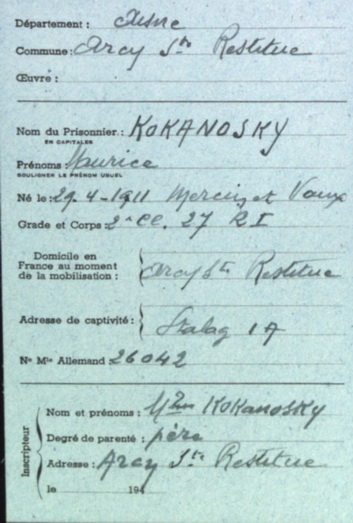 Département : Aisne
Commune : Arcy Ste Restitue
Œuvre :
Nom du Prisonnier : KOKANOSKY
EN CAPITALES
Prénoms : Maurice
SOULIGNER LE PRÉNOM USUEL
Né le : 29-4-1911 Mercin et Vaux
Grade et Corps : 2e Cl. 27 R I
Domicile en
France au moment
de la mobilisation : Arcy Ste Restitue
Adresse de captivité : Stalag 1 A
No Mle Allemand : 26042
Inscripteur
Nom et prénoms : KOKanosKy
Degré de parenté : père
Adresse : Arcy Ste Restitue
le 194